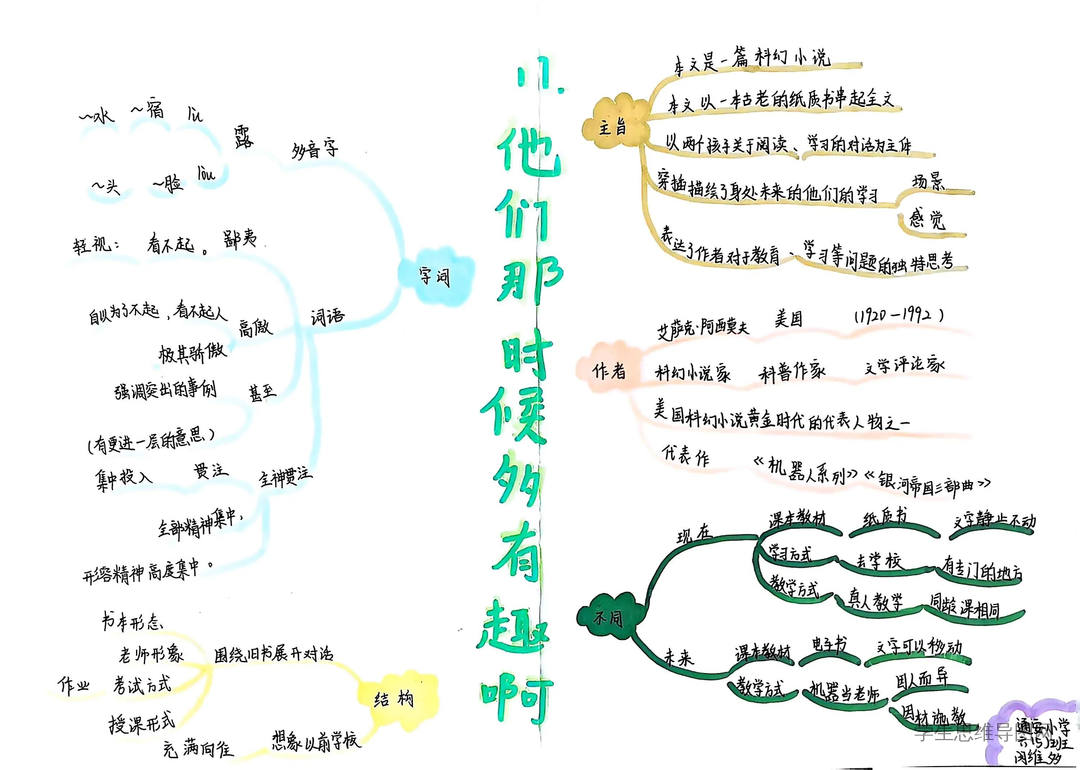 17. 他们那时候多有趣啊
字词
多音字
露
lù
~宿
~水
lòu
~脸
~头
词语
鄙夷
轻视：看不起。
高傲
自以为了不起，看不起人
极其骄傲
甚至
强调突出的事例
(有更进一层的意思)
全神贯注
贯注
集中投入
全部精神集中,
形容精神高度集中。
结构
围绕旧书展开对话
书本形态、
老师形象
作业 考试方式
授课形式
想象以前学校
充满向往
主旨
本文是一篇科幻小说
本文以一本古老的纸质书串起全文
以两个孩子关于阅读、学习的对话为主体
穿插描绘了身处未来的他们的学习
场景
感觉
表达了作者对于教育、学习等问题的独特思考
作者
艾萨克·阿西莫夫 美国 (1920-1992)
科幻小说家 科普作家 文学评论家
美国科幻小说黄金时代的代表人物之一
代表作 《机器人系列》《银河帝国三部曲》
不同
现在
课本教材 纸质书 文字静止不动
学习方式 去学校 有专门的地方
教学方式 真人教学 同龄课相同
未来
课本教材 电子书 文字可以移动
教学方式 机器当老师 因人而异
因材施教
学生思维导图网
六(5)班